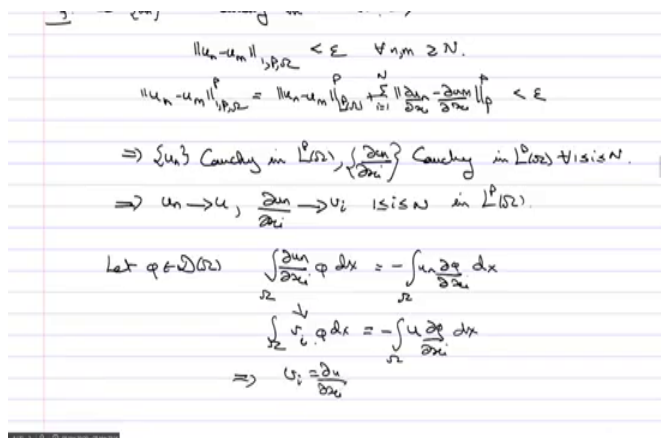 ‖uₙ-uₘ‖₁,ₚ,Ω < ε ∀ n,m ≥ N.
‖uₙ-uₘ‖ᵖ₁,ₚ,Ω = ‖uₙ-uₘ‖ᵖₚ,Ω + Σᴺᵢ₌₁ ‖∂uₙ/∂xᵢ - ∂uₘ/∂xᵢ‖ᵖₚ < ε
⇒ {uₙ} Cauchy in Lᵖ(Ω), {∂uₙ/∂xᵢ} Cauchy in Lᵖ(Ω) ∀ 1≤i≤N.
⇒ uₙ → u, ∂uₙ/∂xᵢ → vᵢ 1≤i≤N in Lᵖ(Ω).
Let φ ∈ D(Ω) ∫_Ω ∂uₙ/∂xᵢ φ dx = -∫_Ω uₙ ∂φ/∂xᵢ dx
↓
∫_Ω vᵢ φ dx = -∫_Ω u ∂φ/∂xᵢ dx
⇒ vᵢ = ∂u/∂xᵢ